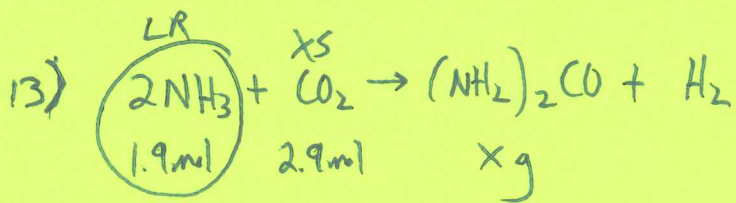 LR XS
13) 2NH₃ + CO₂ → (NH₂)₂CO + H₂
1.9 mol 2.9 mol x g